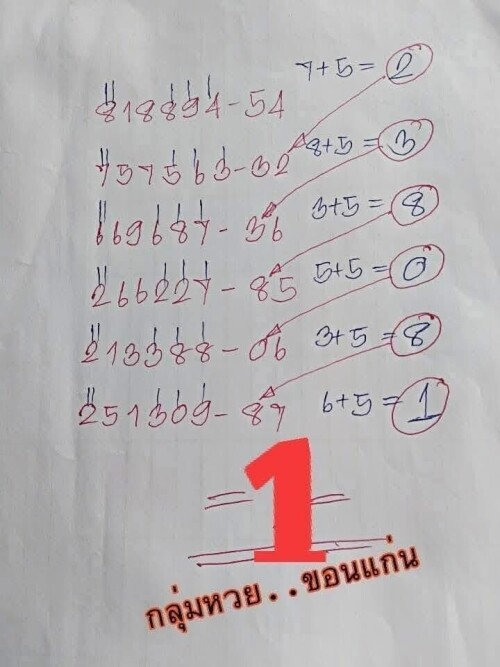 818894-54 7+5=2
757563-32 8+5=3
669687-36 3+5=8
266227-85 5+5=0
213388-06 3+5=8
251309-87 6+5=1
=1=
กลุ่มหวย..ขอนแก่น